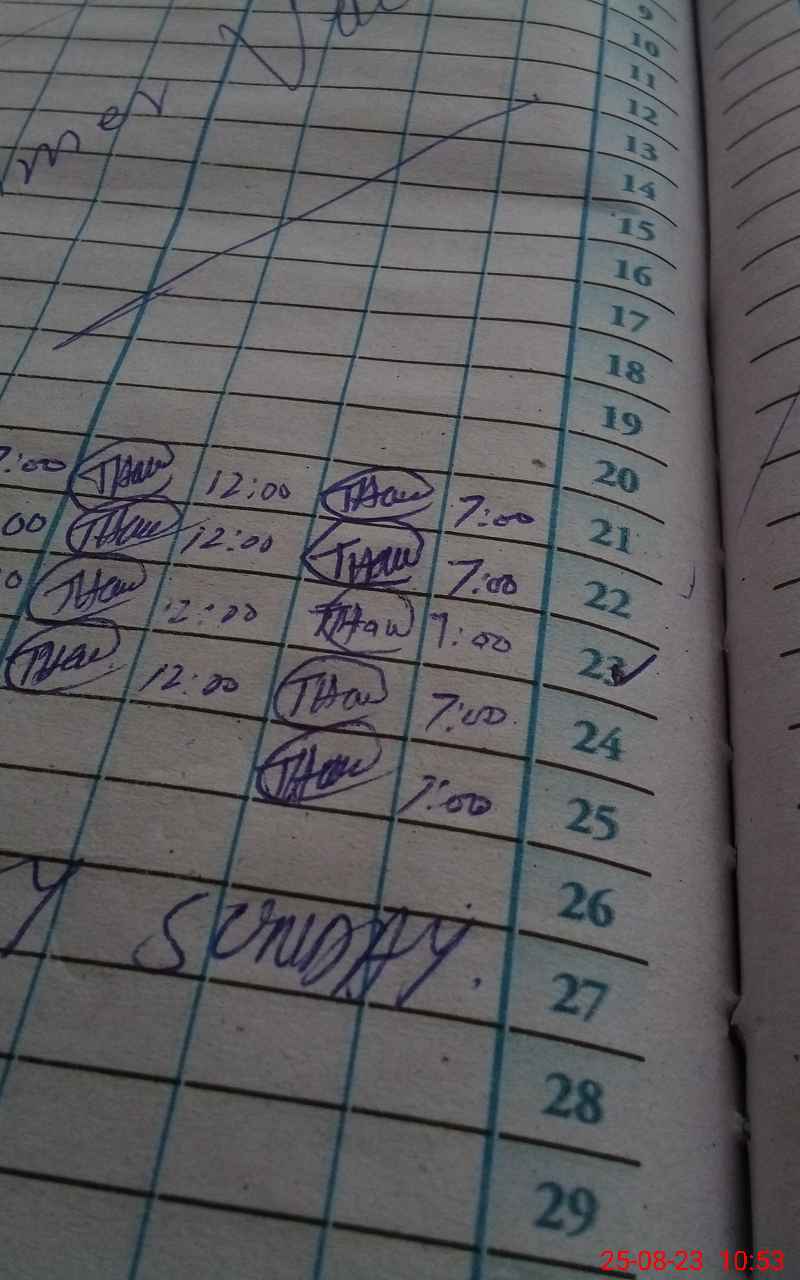 9
10
11
mer
12
13
14
15
16
17
18
19
7:00 THau 12:00 THau 7:00 20
00 THau 12:00 THau 7:00 21
0 THau 12:00 THau 7:00 22
THau 12:00 THau 7:00 23
THau 7:00 24
25
26
Y SUNDAY. 27
28
29
25-08-23 10:53